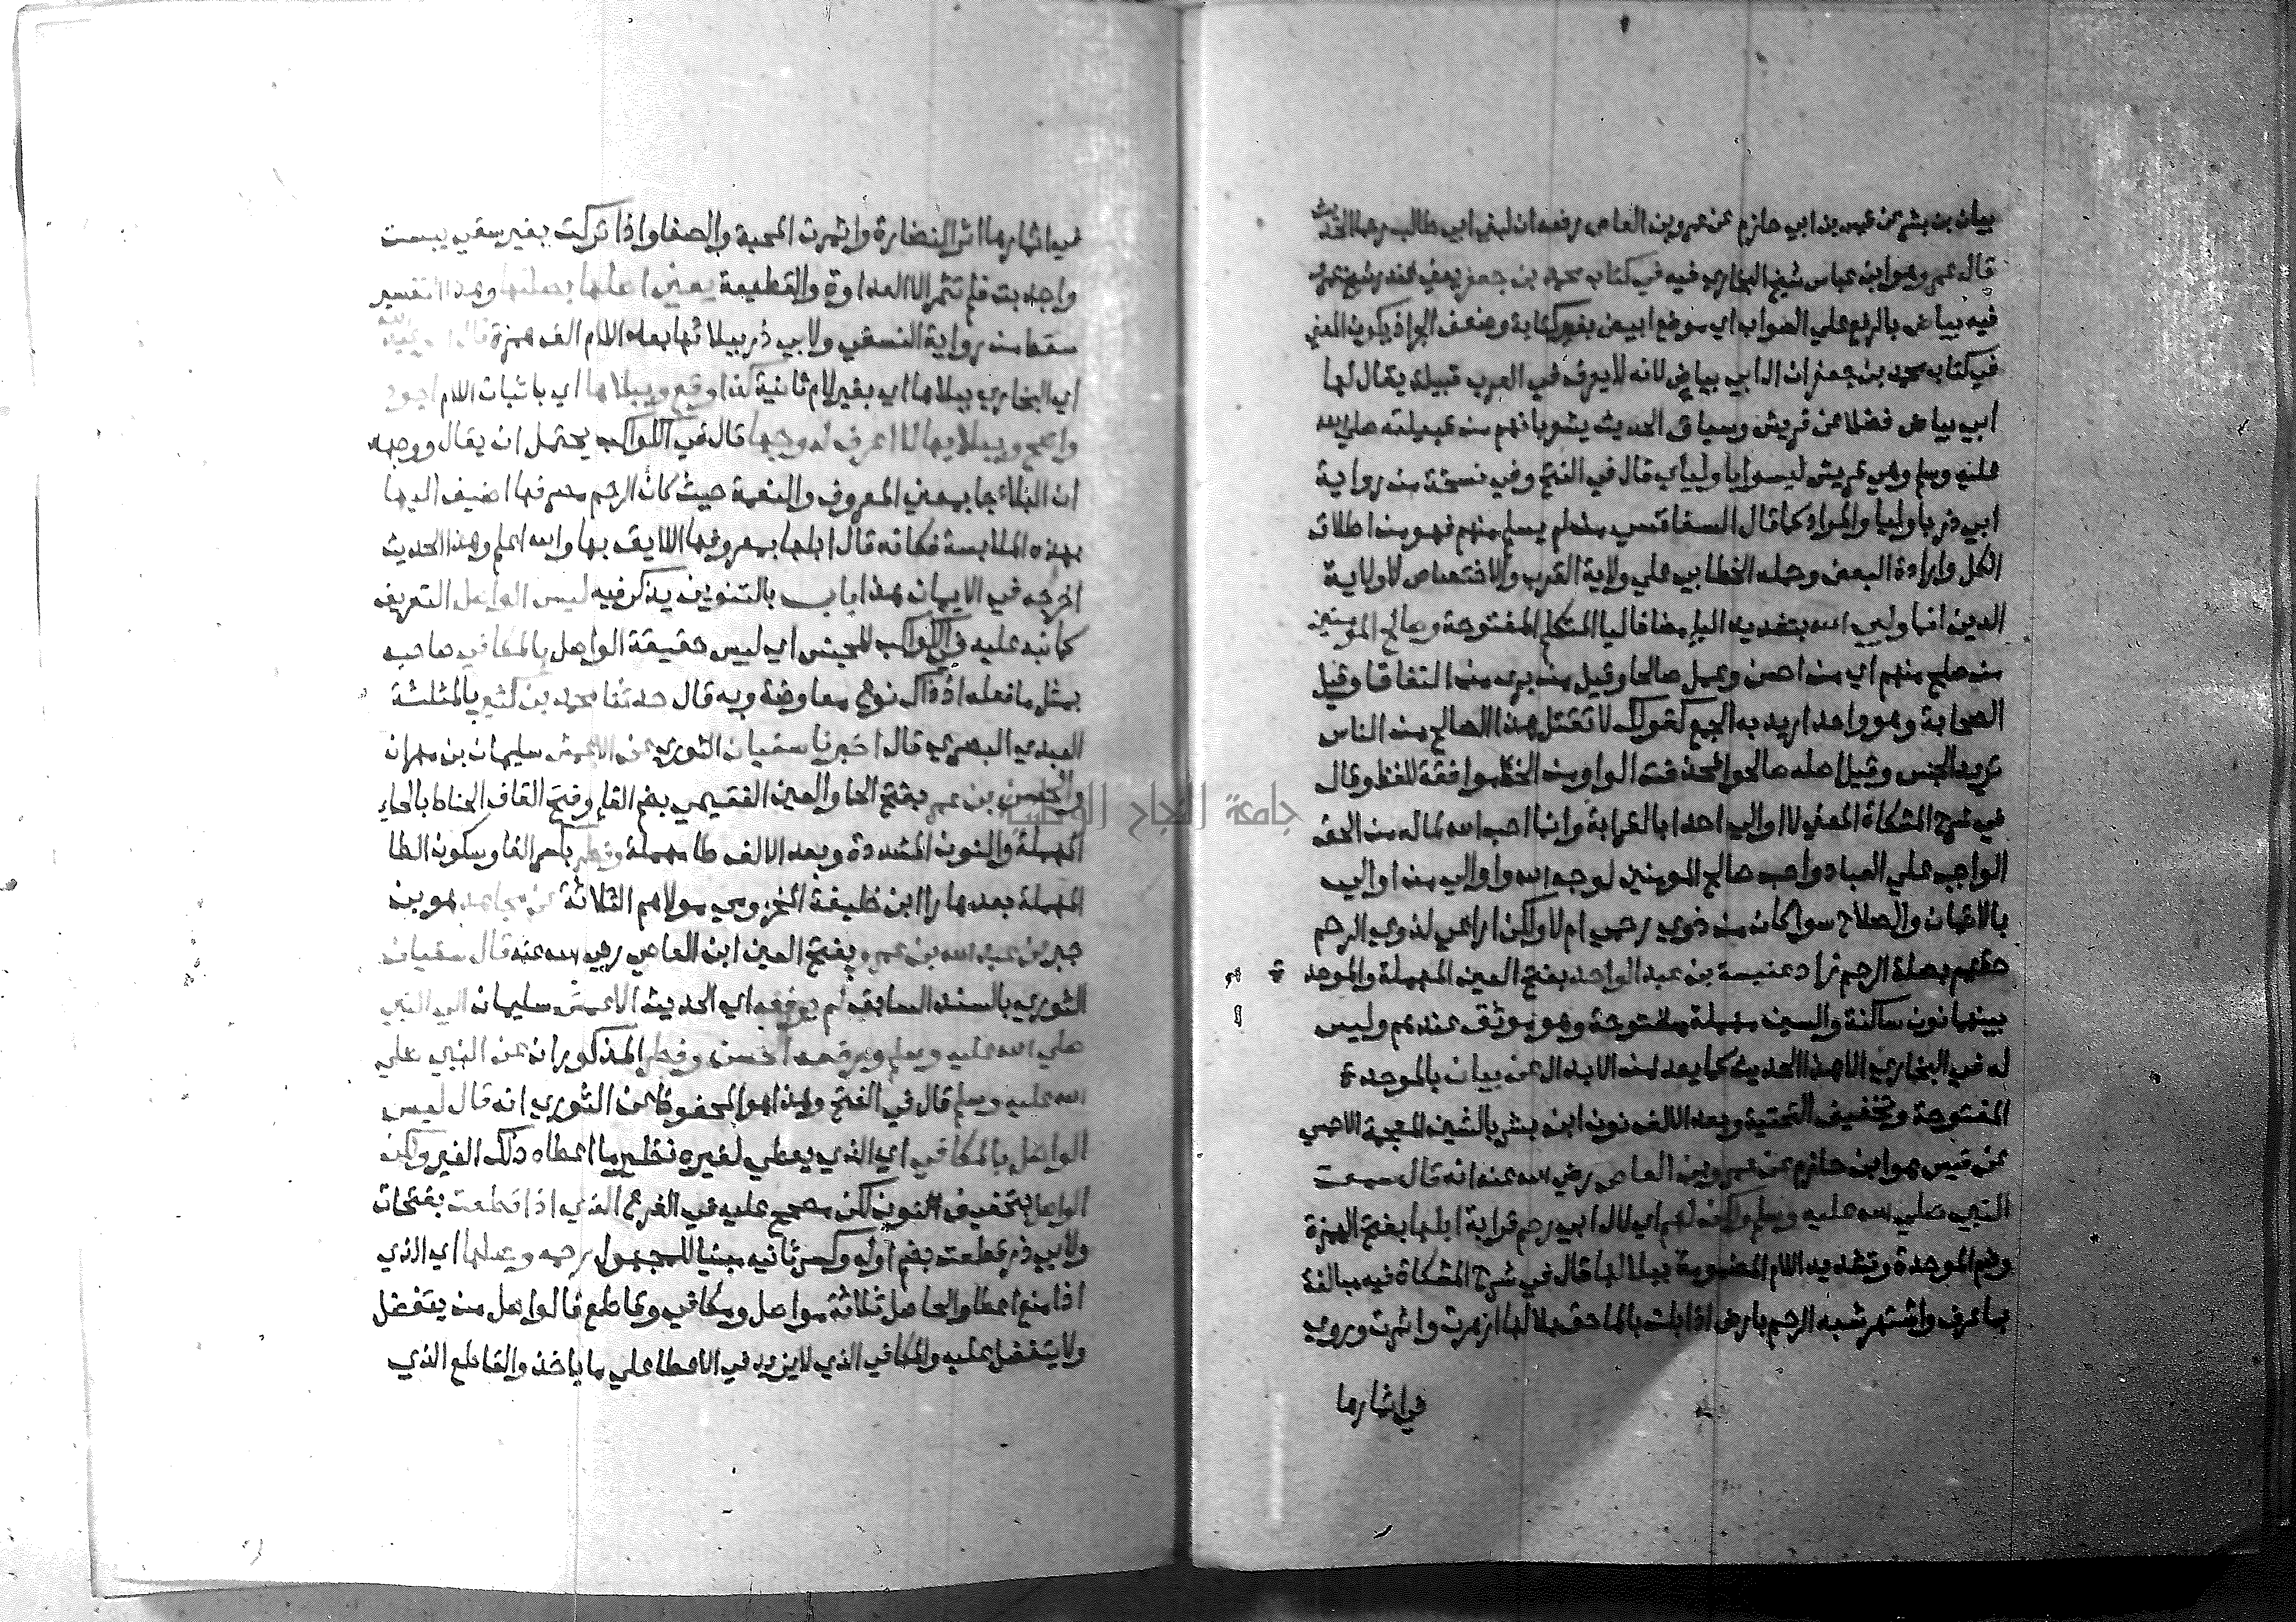 بيان بن بشر عن قيس بن ابي حازم عن عمرو بن العاص رفعه ان لبني ابي طالب رحما الحديث
قال عمرو هو ابن عباس شيخ البخاري فيه في كتاب محمد بن جعفر يعني غندر شيخ عمرو
فيه بياض بالرفع علي الصواب اي موضع ابيض بغير كتابة وضعف الجر اذ يكون المعني
في كتاب محمد بن جعفر ان ال ابي بياض لانه لا يعرف في العرب قبيلة يقال لها
ابي بياض فضلا عن قريش وسياق الحديث يشعر بانهم من قبيلته صلي الله
عليه وسلم وهي قريش ليسوا باوليأي قال في الفتح وفي نسخة من رواية
ابي ذر باوليا والمراد كما قال السفاقسي من لم يسلم منهم فهو من اطلاق
الكل وارادة البعض وحمله الخطابي علي ولاية القرب والاختصاص لا ولاية
الدين انما وليي الله بتشديد اليا مضافا ليا المتكلم المفتوحة وصالح المومنين
من صلح منهم اي من احسن وعمل صالحا وقيل من بري من النفاق وقيل
الصحابة وهو واحد اريد به الجمع كقولك لا تقتل هذا الصالح من الناس
تريد الجنس وقيل اصله صالحوا فحذفت الواو من الخط موافقة للفظ وقال
في شرح المشكاة المعني لا اوالي احدا بالقرابة وانما احب الله لما له من الحق
الواجب علي العباد واحب صالح المومنين لوجه الله واوالي من اوالي
بالايمان والصلاح سوا كان من ذوي رحمي ام لا ولكن اراعي لذوي الرحم
حقهم بصلة الرحم زاد عنبسة بن عبد الواحد بفتح العين المهملة والموحدة
بينهما نون ساكنة والسين مهملة مفتوحة وهو موثق عندهم وليس
له في البخاري الا هذا الحديث عن بيان بالموحدة
المفتوحة وتخفيف التحتية وبعد الالف نون ابن بشر بالشين المعجمة الاحمسي
عن قيس هو ابن حازم عن عمرو بن العاص رضي الله عنه انه قال سمعت
النبي صلي الله عليه وسلم ولكن لهم اي لال ابي رحم قرابة ابلها بفتح الهمزة
وضم الموحدة وتشديد اللام المضمومة ببلالها قال في شرح المشكاة فيه مبالغة
بما عرف واشتهر شبه الرحم بارض اذا بلت بالما حق بلالها ازهرت واثمرت وروي
في اثمارها
في اثمارها اثر النضارة واثمرت المحبة والصفا واذا تركت بغير سقي يبست
واجدبت فلم تثمر الا العداوة والقطيعة يعني اصلها بصلتها وهذا التفسير
سقط من رواية النسفي ولابي ذر ببلائها بعد اللام الف همزة قال ابو عبد الله
اي البخاري ببلاها اي بغير لام ثانية كذا وقع وببلالها اي باثبات اللام اجود
واصح وببلاها لا اعرف له وجها قال في الكواكب يحتمل ان يقال ووجهه
ان البلاء جا بمعني المعروف والنعمة حيث كان الرحم مصرفها اضيف اليها
بهذه الملابسة فكانه قال ابلها بمعروفها اللايق بها والله اعلم وهذا الحديث
اخرجه في الايمان هذا باب بالتنوين يذكر فيه ليس الواصل التعريف
كما نبه عليه في الكواكب للجنس اي ليس حقيقة الواصل بالمكافي صاحبه
بمثل ما فعله اذ ذاك نوع معاوضة وبه قال حدثنا محمد بن كثير بالمثلثة
العبدي البصري قال اخبرنا سفيان الثوري عن الاعمش سليمان بن مهران
والحسن بن عمرو بفتح الحا والعين الفقيمي بضم الفا وفتح القاف الحناط بالحاء
المهملة والنون المشددة وبعد الالف طا مهملة وفطر بكسر الفا وسكون الطا
المهملة بعدها را ابن خليفة المخزومي مولاهم الثلاثة عن مجاهد هو بن
جبر عن عبد الله بن عمرو بفتح العين ابن العاصي رضي الله عنه قال سفيان
الثوري بالسند السابق لم يرفعه اي الحديث الاعمش سليمان الي النبي
صلي الله عليه وسلم ورفعه الحسن وفطر المذكوران عن النبي صلي
الله عليه وسلم قال في الفتح وهذا هو المحفوظ عن الثوري انه قال ليس
الواصل بالمكافي اي الذي يعطي لغيره نظير ما اعطاه ذلك الغير ولكن
الواصل بتخفيف النون لكن مصحح عليه في الفرع الذي اذا قطعت بفتحات
ولابي ذر قطعت بضم اوله وكسر ثانيه مبنيا للمجهول رحمه وصلها اي الذي
اذا منع اعطا والحاصل ثلاثة مواصل ومكافي وقاطع فالواصل من يتفضل
ولا يتفضل عليه والمكافي الذي لا يزيد في الاعطا علي ما ياخذ والقاطع الذي